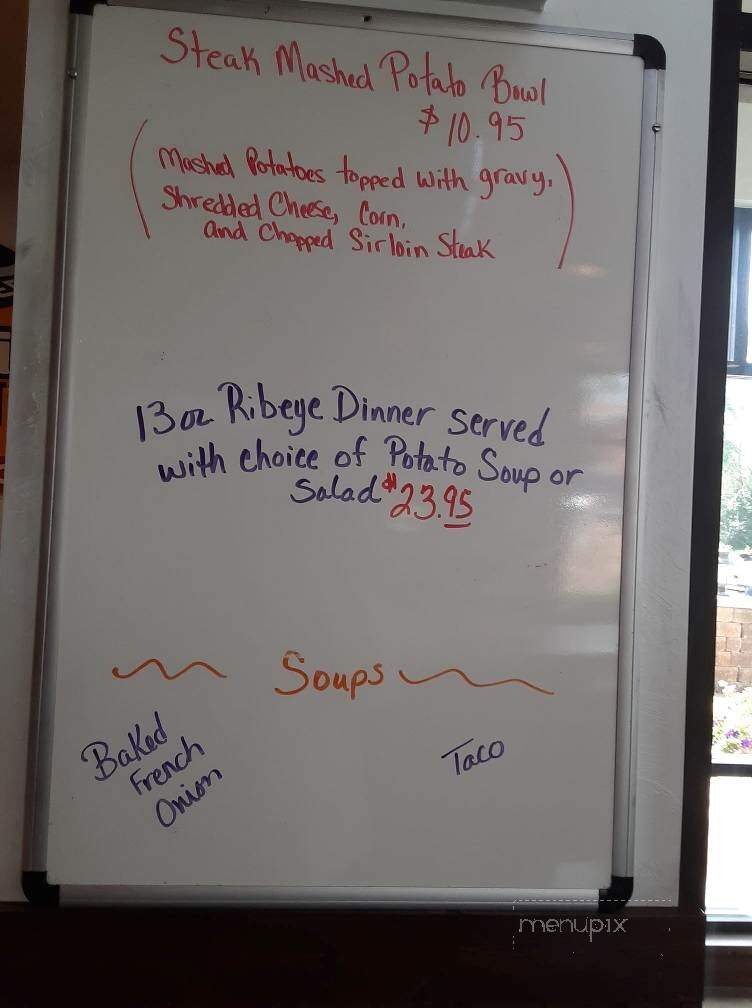 Steak Mashed Potato Bowl
$10.95
(Mashed Potatoes topped with gravy,
Shredded Cheese, Corn,
and Chopped Sirloin Steak)
13oz Ribeye Dinner served
with choice of Potato Soup or
Salad $23.95
Soups
Baked
French
Onion
Taco
menupix